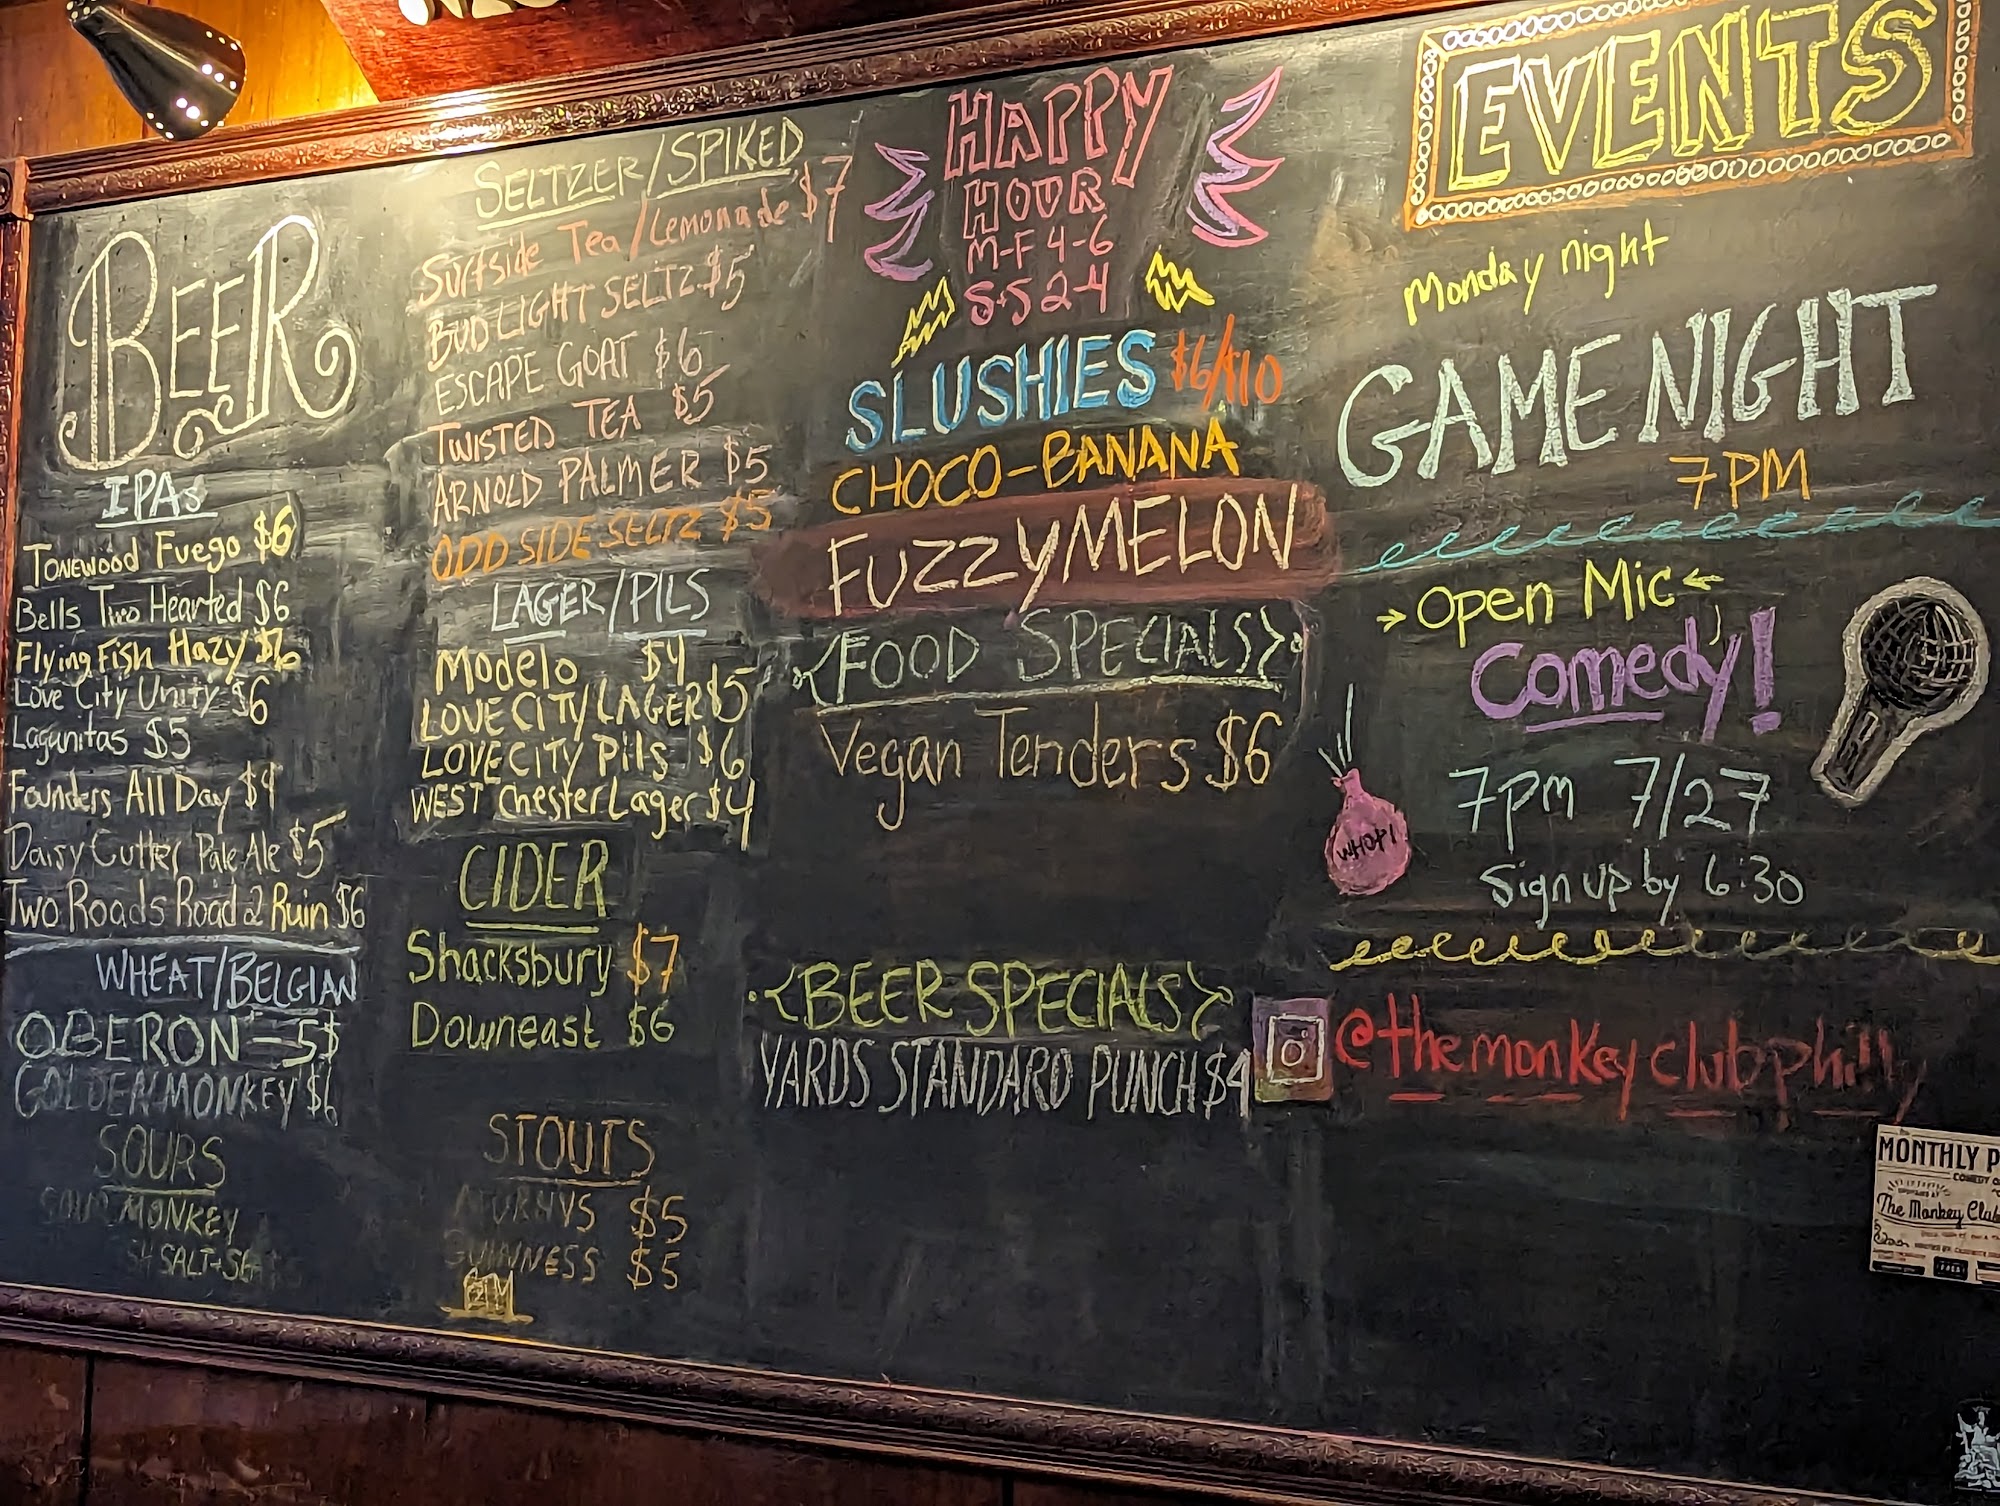 BEER
IPAs
Tonewood Fuego $6
Bells Two Hearted $6
Flying Fish Hazy $6
Love City Unity $6
Lagunitas $5
Founders All Day $4
Daisy Cutter Pale Ale $5
Two Roads Road 2 Ruin $6
WHEAT/BELGIAN
OBERON - 5$
GOLDEN MONKEY $6
SOURS
MONKEY
SALT
SELTZER/SPIKED
Surfside Tea/Lemonade $7
BUD LIGHT SELTZ $5
ESCAPE GOAT $6
TWISTED TEA $5
ARNOLD PALMER $5
ODD SIDE SELTZ $5
LAGER/PILS
Modelo $4
LOVE CITY LAGER $5
LOVE CITY Pils $6
WEST Chester Lager $4
CIDER
Shacksbury $7
Downeast $6
STOUTS
MURHYS $5
GUINNESS $5
HAPPY
HOUR
M-F 4-6
S+S 2-4
SLUSHIES $6/$10
CHOCO-BANANA
FUZZYMELON
FOOD SPECIALS
Vegan Tenders $6
BEER SPECIALS
YARDS STANDARD PUNCH $4
EVENTS
Monday night
GAME NIGHT
7PM
Open Mic
Comedy!
7pm 7/27
Sign up by 6:30
WHOP!
@themonkeyclubphilly
MONTHLY P
COMEDY
The Monkey Club